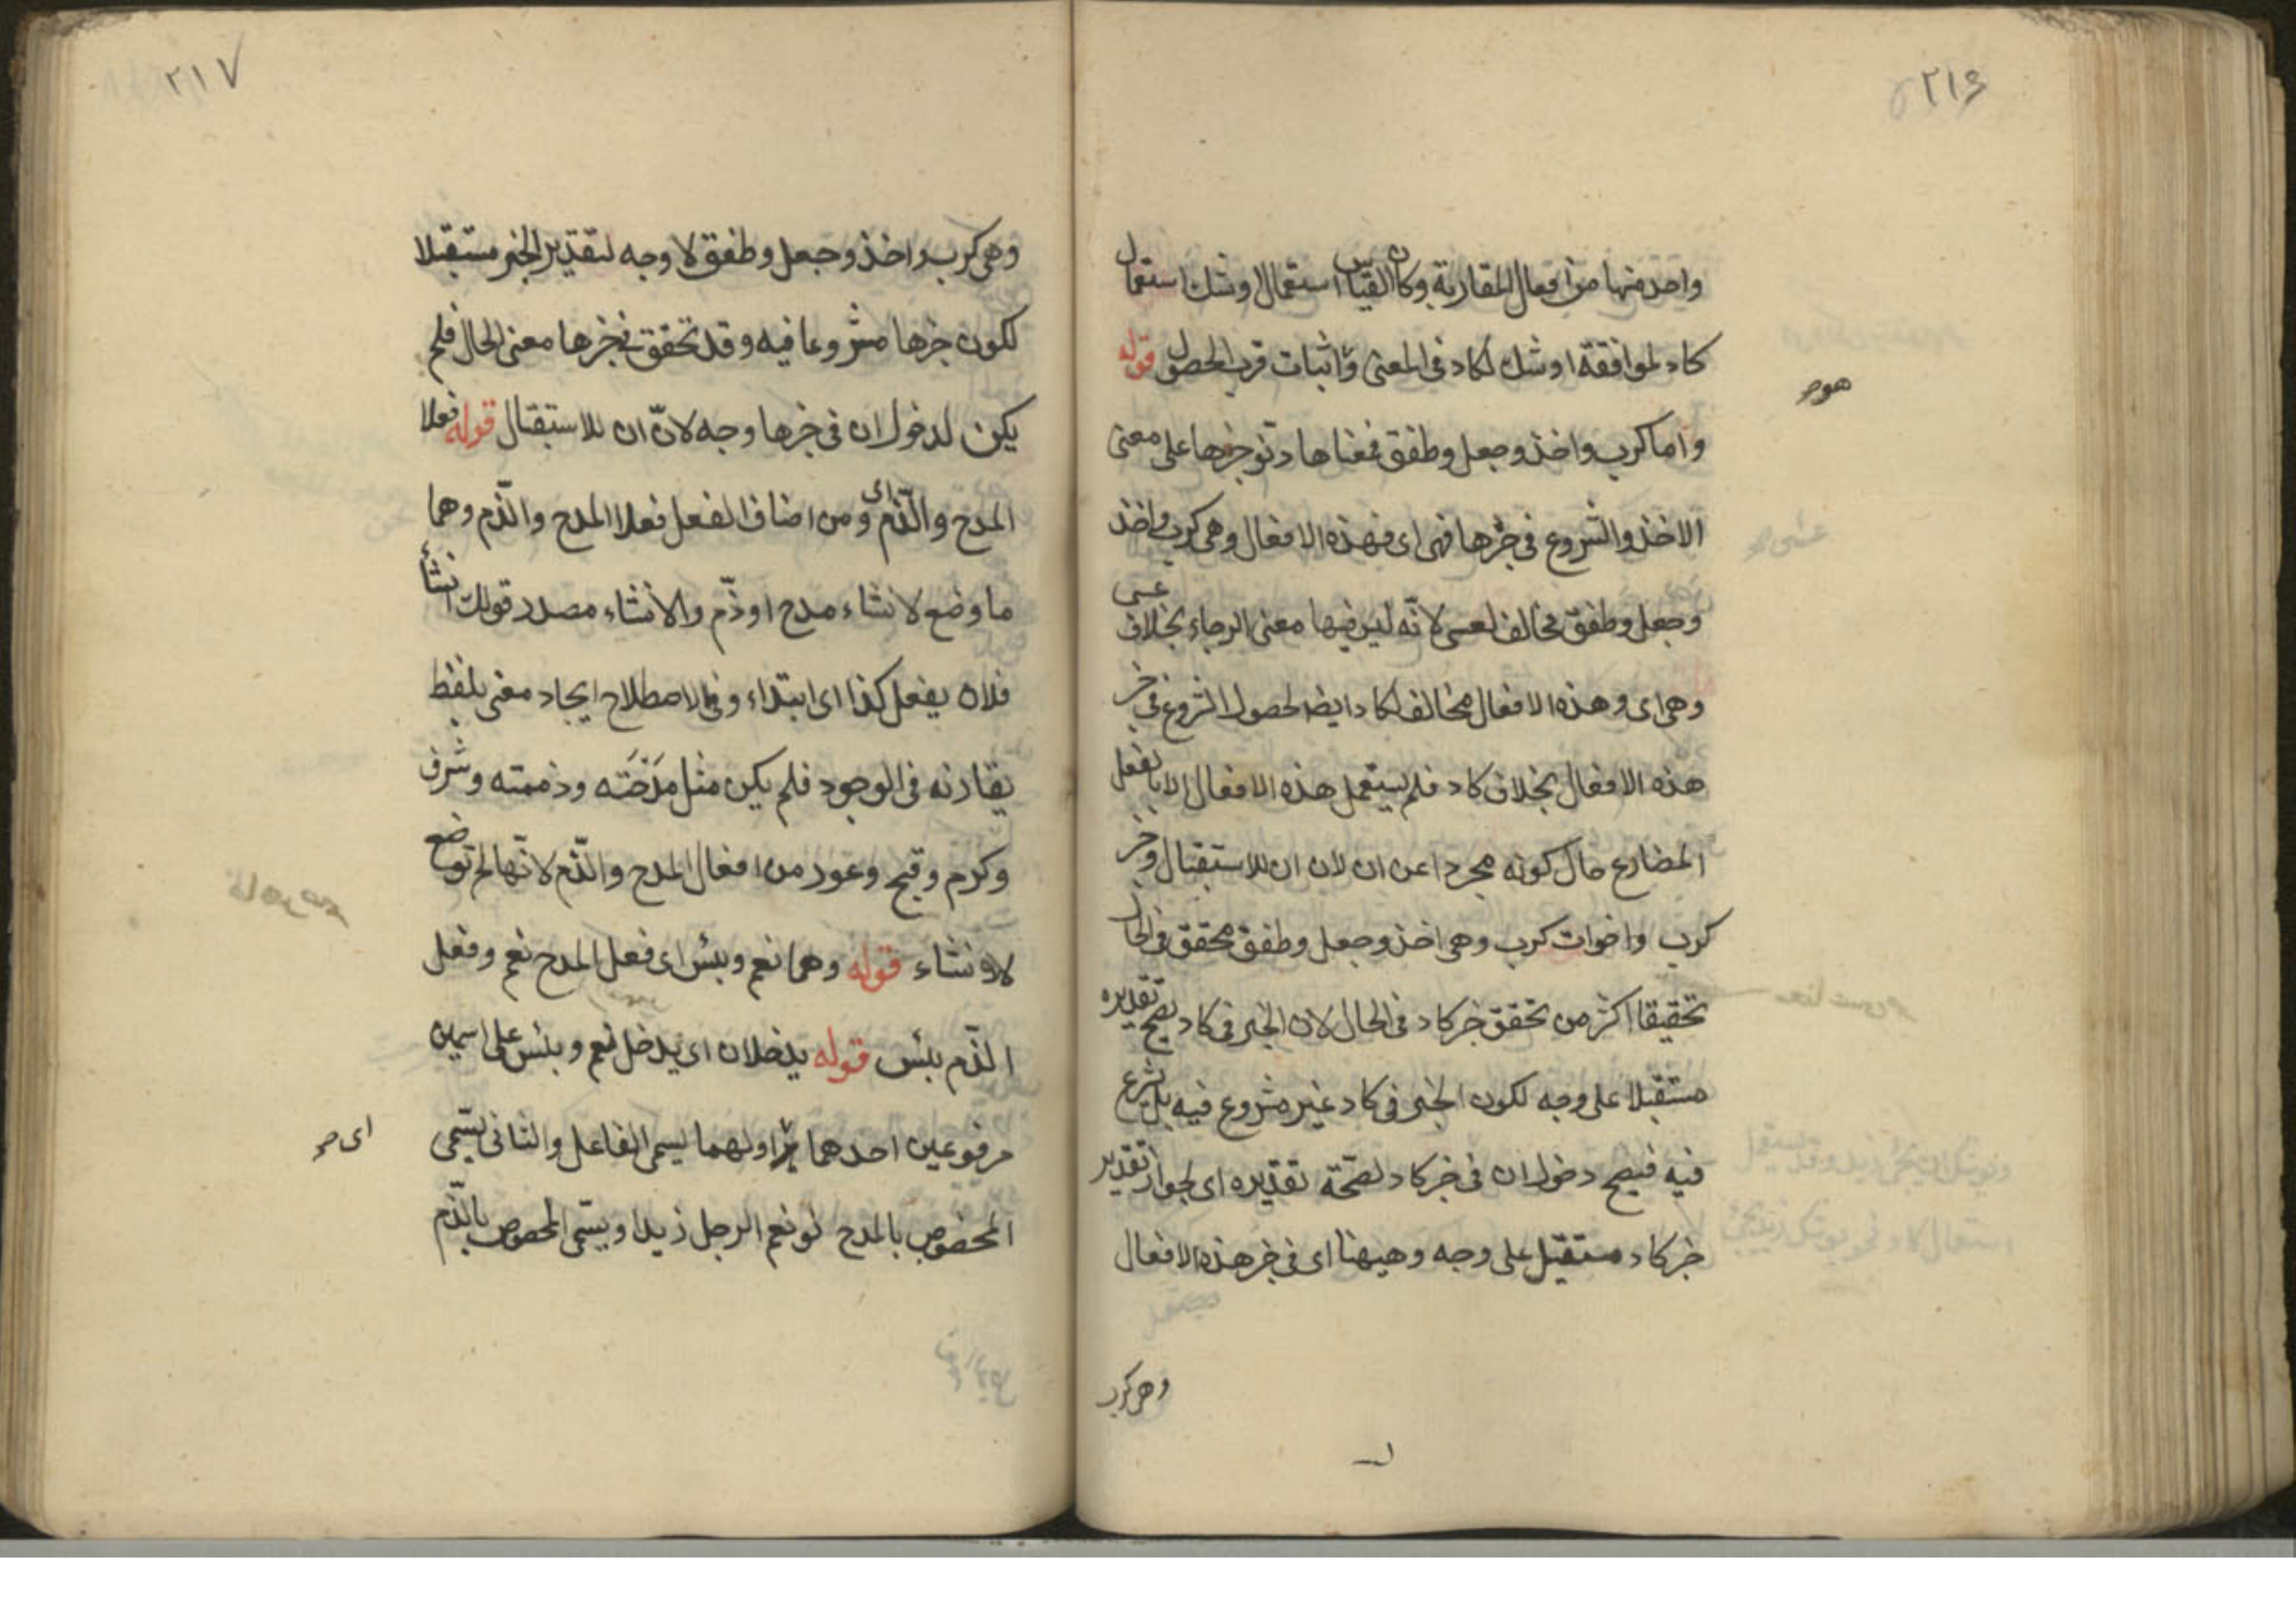 ٢١۶
واحد منها من افعال المقاربة وكان القياس استعمال اوشك استعمال
كاد لموافقة اوشك لكاد فى المعنى و اثبات قرب الحصول قوله
هو صح
واما كرب واخذ وجعل وطفق فمعناها دنو خبرها على معنى
الاخذ والشروع فى خبرها فهى اى فهذه الافعال وهى كرب واخذ
وجعل وطفق مخالف لعسى لانّه ليس فيها معنى الرجاء بخلاف عسى
وهى اى وهذه الافعال مخالف لكاد ايضا لحصول الشروع فى خبر
هذه الافعال بخلاف كاد فلم يستعمل هذه الافعال الا بالفعل
المضارع حال كونه مجردا عن ان لان ان للاستقبال وخبر
كرب واخوات كرب وهى اخذ وجعل وطفق محقق فى الحال
تحقيقا اكثر من تحقق خبر كاد فى الحال لان الخبر فى كاد يصح تقديره
مستقبلا على وجه لكون الخبر فى كاد غير مشروع فيه بل يشرع
فيه فيصح دخول ان فى خبر كاد لصّحة تقديره اى لجواز تقدير
خبر كاد مستقبل على وجه وهيهنا اى فى خبر هذه الافعال
وهى كرب
٢١٧
وهى كرب واخذ وجعل وطفق لا وجه لتقدير الخبر مستقبلا
لكون خبرها مشروعا فيه وقد تحقق فى خبرها معنى الحال فلم
يكن لدخول ان فى خبرها وجه لانّ ان للاستقبال قوله فعلا
المدح والذّم اى ومن اصناف الفعل فعلا المدح والذّم وهما
ما وضع لانشاء مدح او ذّم والانشاء مصدر قولك انشأ
فلان يفعل كذا اى ابتداء وفى الاصطلاح ايجاد معنى بلفظ
يقارنه فى الوجود فلم يكن مثل مَدَحَته وذممته وشرف
وكرم وقبح وعور من افعال المدح والذّم لانّها لم توضع
للانشاء قوله وهما نعم وبئس اى فعل المدح نعم وفعل
الذّم بئس قوله يدخلان اى يدخل نعم وبئس على اسمين
مرفوعين احدهما اولهما يسمى الفاعل والثانى يسّمى
اى صح
المخصوص بالمدح نحو نعم الرجل زيد اويسّمى المخصوص بالذّم